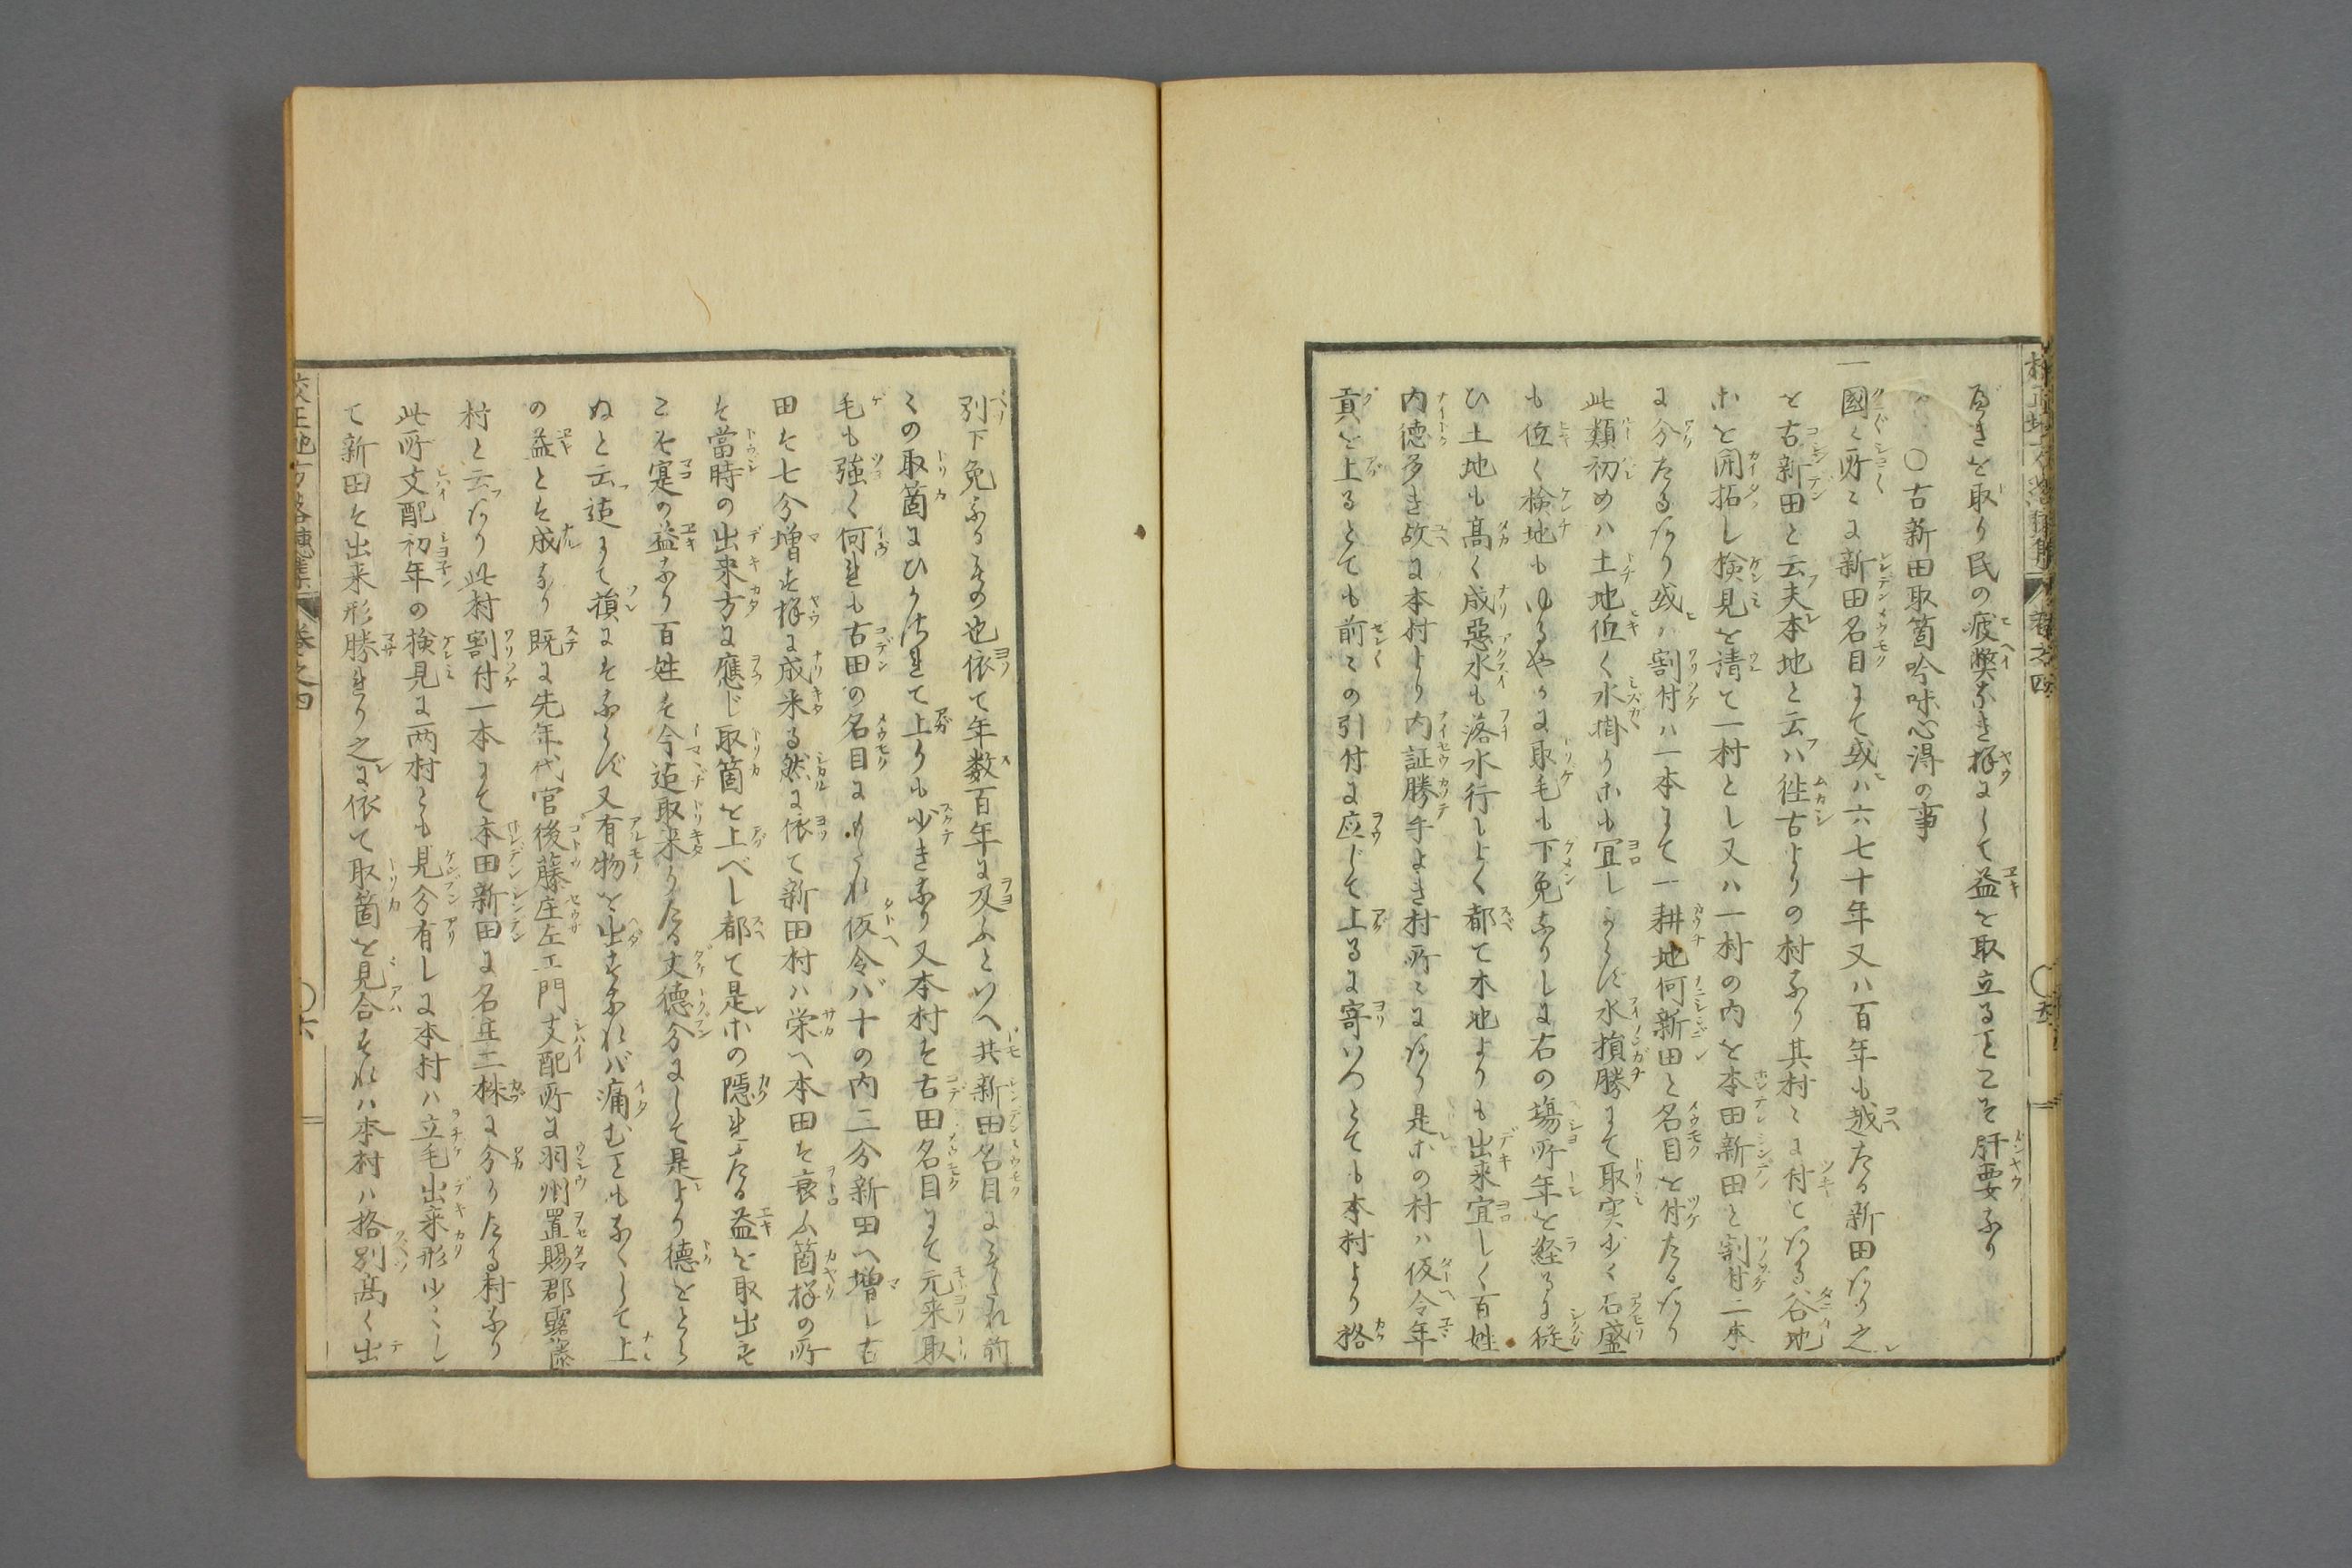 るきを取り民の疲弊なき様にして益を取立ることこそ肝要なり
○古新田取箇吟味心得の事
一国々所々に新田名目にて或ハ六七十年又ハ百年も越たる新田あり之
を古新田と云夫本地と云ハ往古よりの村なり其村々に付とある谷地
ホを開拓し検見を請て一村とし又ハ一村の内を本田新田と割付二本
に分たるあり或ハ割付ハ一本にて一耕地何新田と名目を付たるあり
此類初めハ土地低く水掛りホも宜しからず水損勝にて取実少く石盛
も低く検地もゆるやかに取毛も下免なりしに右の場所年を経るに従
ひ土地も高く成悪水も落水行しよく都て本地よりも出来宜しく百姓
内徳多き故に本村より内証勝手よき村所々にあり是ホの村ハ仮令年
貢を上るとても前々の引付に応じて上るに寄いつとても本村より格
別下免なるもの也依て年数百年に及ふといへ共新田名目になされ前
々の取箇にひかされて上りも少きなり又本村を古田名目にて元来取
毛も強く何れも古田の名目に仮令バ十の内二分新田へ増し古
田を七分増を様に成来る然に依て新田村ハ栄へ本田を衰ふ箇様の所
を当時の出来方に応じ取箇を上べし都て是ホの隠れたる益を取出を
こそ実の益なり百姓を今迄取来りたる丈徳分にして是より徳をとら
ぬと云迄にて損にそならず又有物を出を末れバ痛むこともなくして上
の益とそ成なり既に先年代官後藤庄左エ門支配所に羽州置賜郡露藤
村と云あり此村割付一本にて本田新田に名主二株に分りたる村なり
此所支配初年の検見に両村とも見分有しに本村ハ立毛出来形少々し
て新田を出来形勝れり之に依て取箇を見合それハ本村ハ格別高く出
校正地方落穂集　巻之四　○六